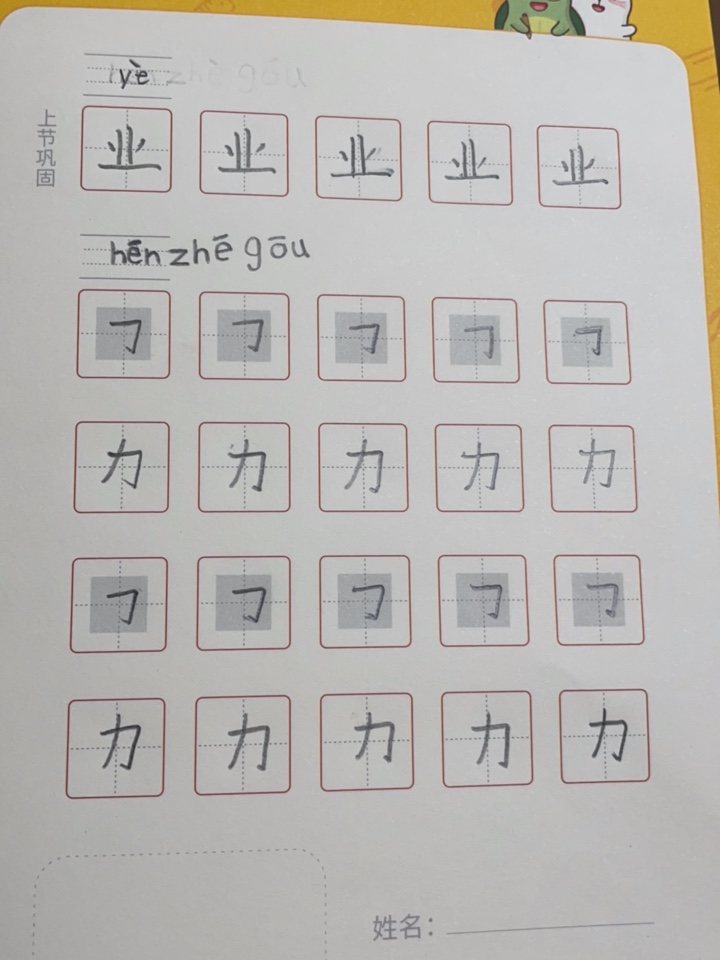 yè
上节巩固
业 业 业 业 业
hēn zhē gōu
㇆ ㇆ ㇆ ㇆ ㇆
力 力 力 力 力
㇆ ㇆ ㇆ ㇆ ㇆
力 力 力 力 力
姓名：